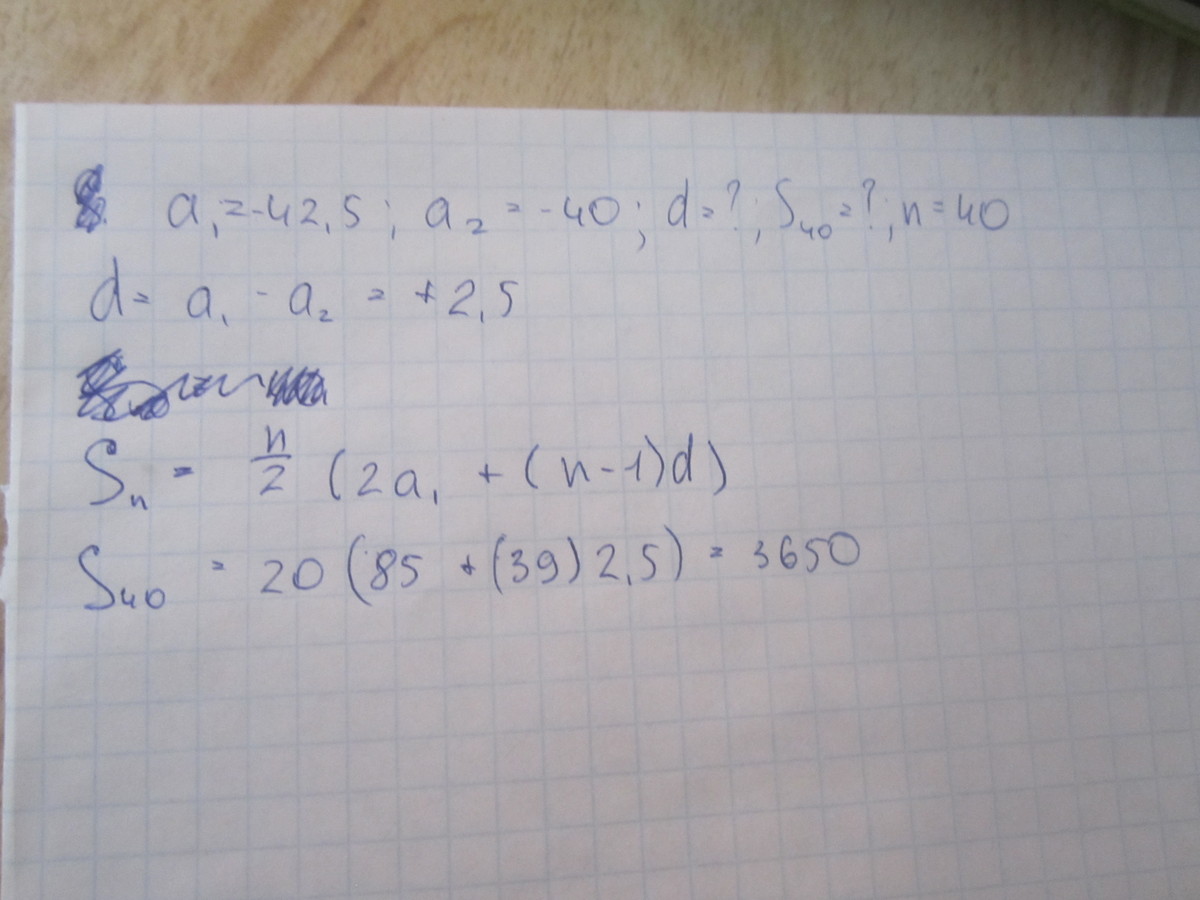 a₁=-42,5; a₂=-40; d=?; S₄₀=?; n=40
d= a₁ - a₂ = +2,5
Sₙ = n/2 (2a₁ + (n-1)d)
S₄₀ = 20 (85 + (39) 2,5) = 3650